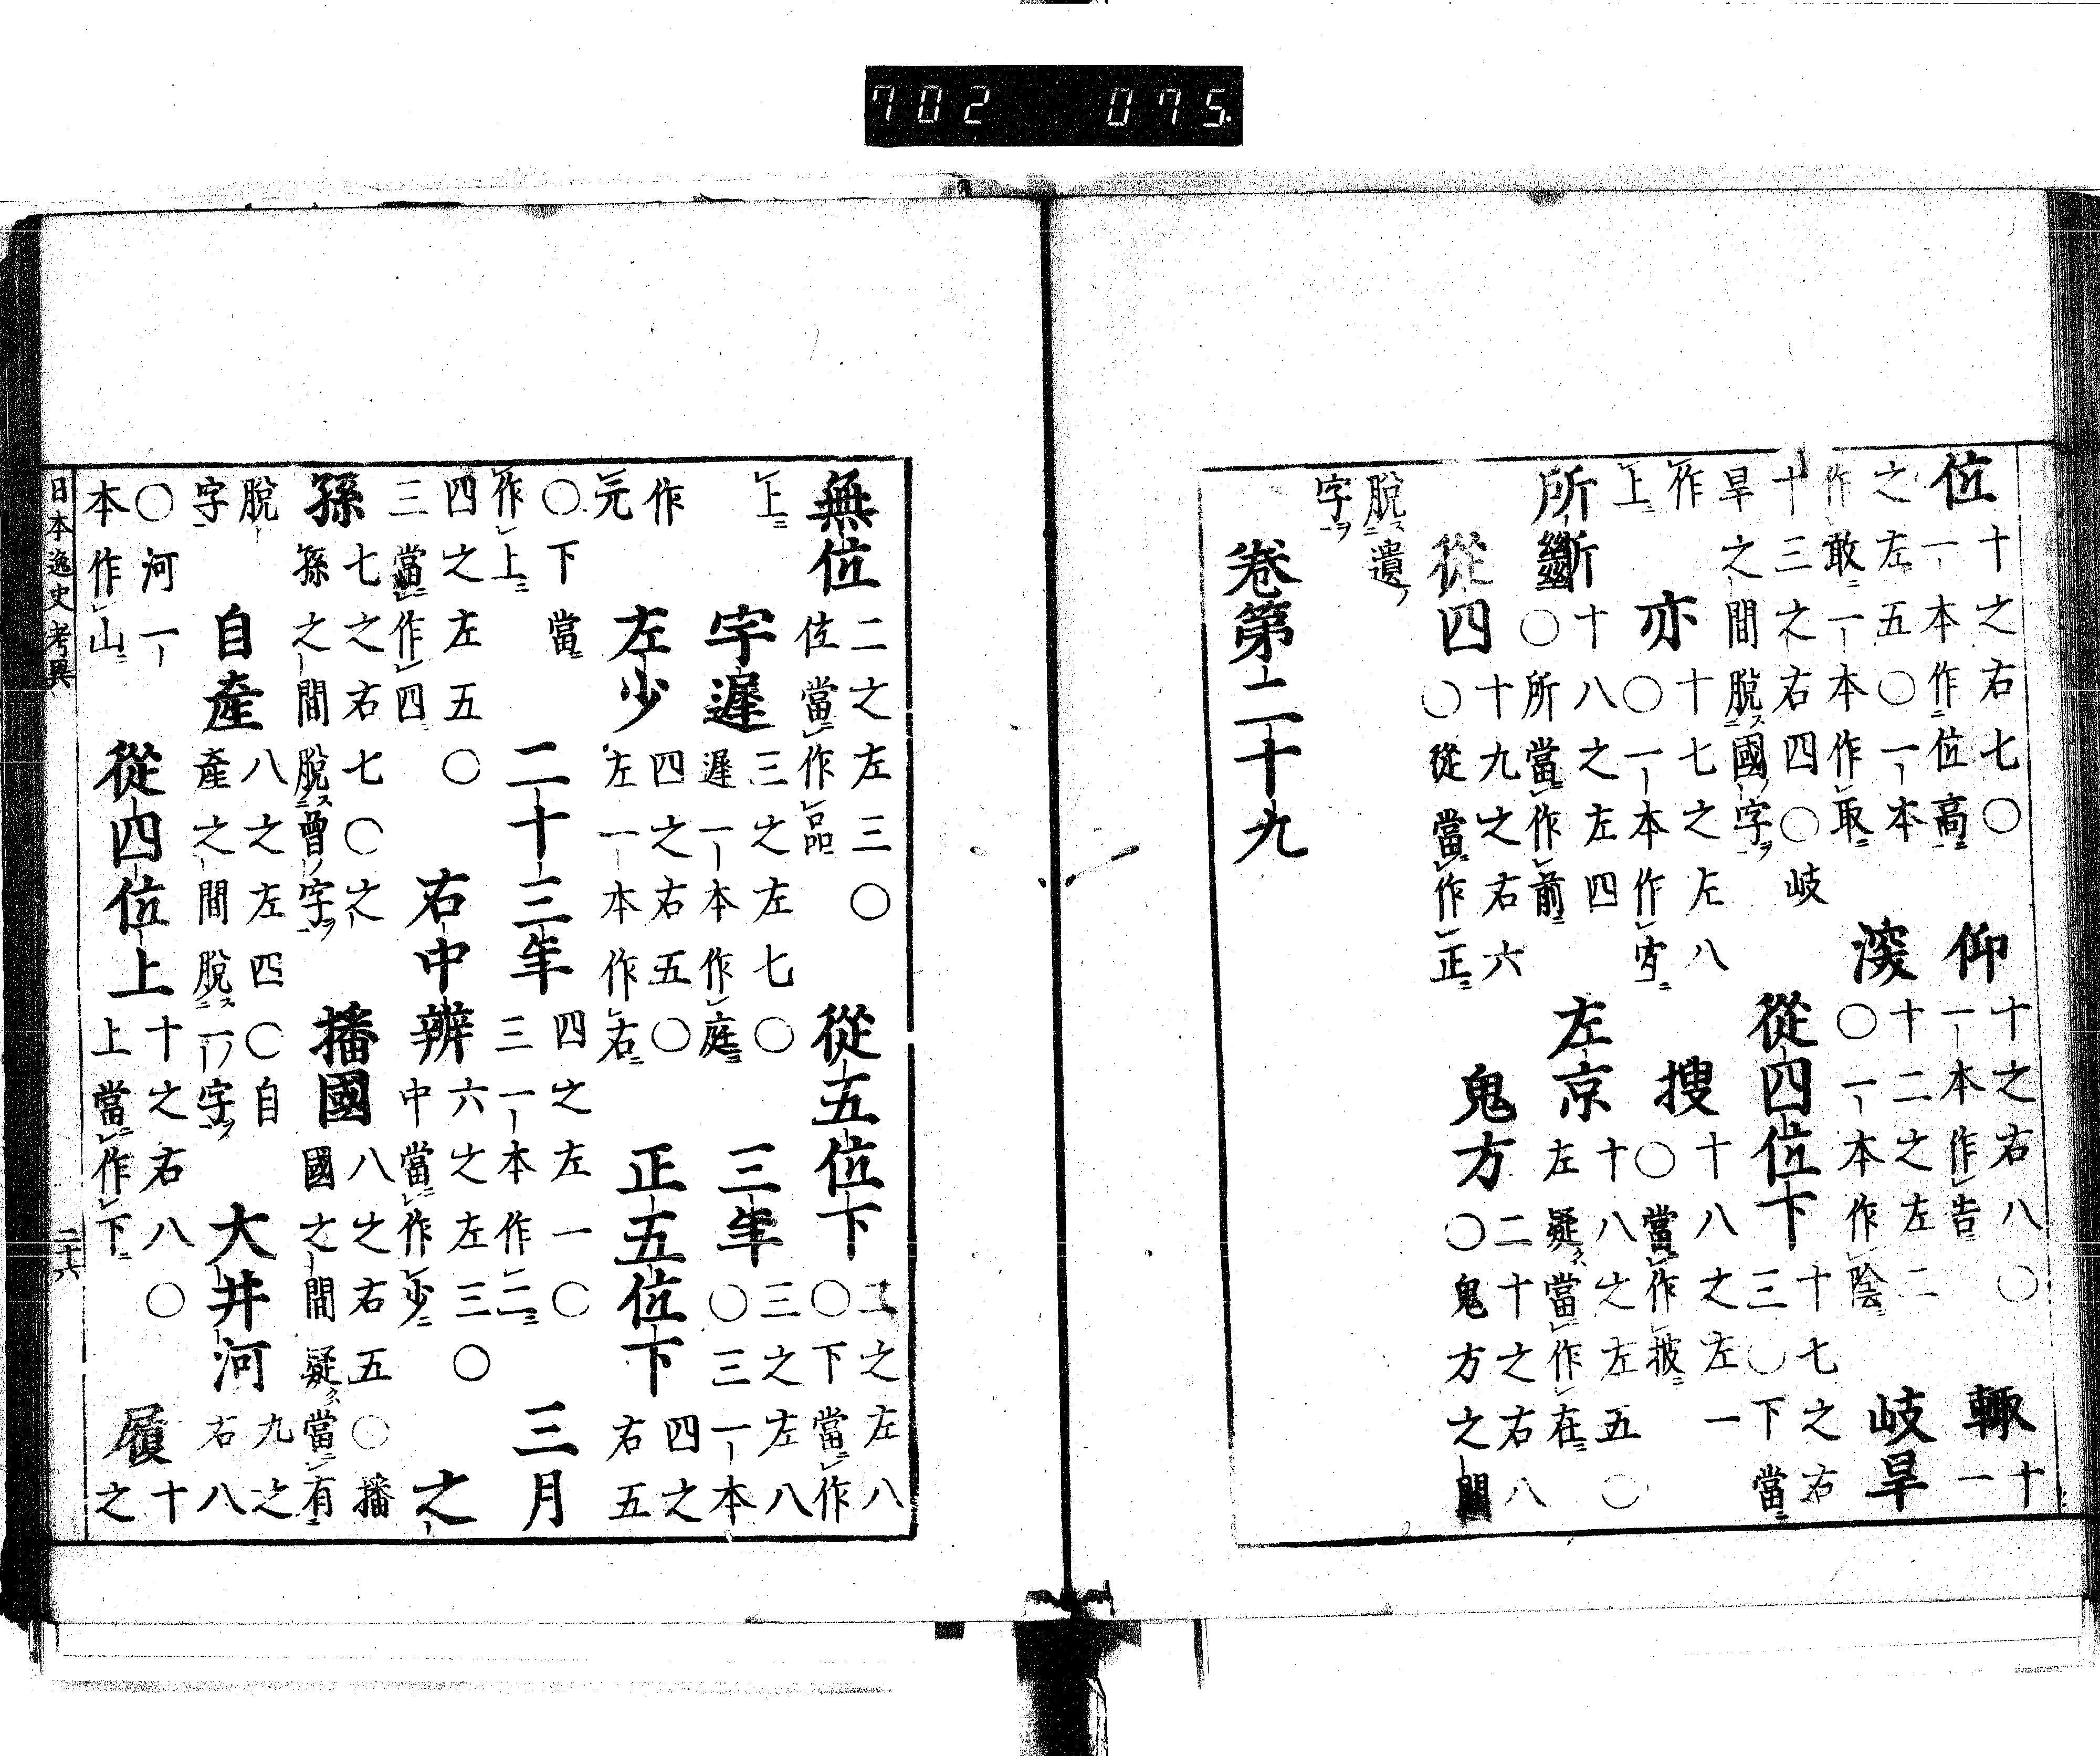 位十之右七〇一本作位高仰十之右八〇一本作告輙十一
之左五〇一本作敢一本作取濚十二之左二〇一本作陰岐旱
十三之右四〇岐旱之間脫國字從四位下十七之右三〇下當
作上亦十七之左八〇一本作搜十八之左一〇當作披
所斷十八之左四〇所當作前左京十八之左五〇左疑當作在
從四十九之右六〇從當作正鬼方二十之右八〇鬼方之間
脫遺字
卷第二十九
無位二之左三〇位當作品從五位下二之左八〇下當作
上字遲三之左七〇遲一本作庭三年三之左八〇三一本
作元左少四之右五〇左一本作右正五位下四之右五
〇下當作上二十三年四之左一〇三一本作二三月
四之左五〇三當作四右中辨六之左三〇中當作少之
孫七之右七〇之孫之間脫曾字播國八之右五〇播國之間疑當有
脫字自產八之左四〇自產之間脫一字大井河九之右八
〇河一本作山從四位上十之右八〇上當作下履十之
日本逸史考異 二十六
702 075